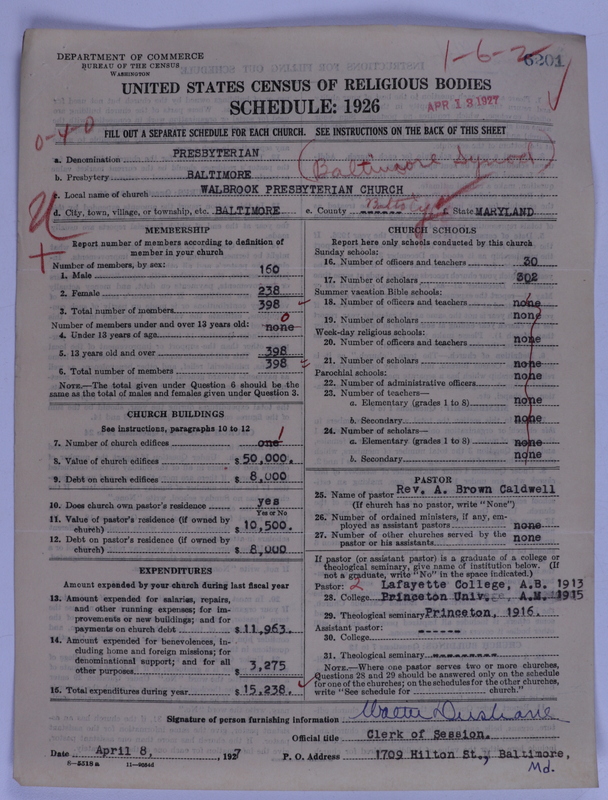 DEPARTMENT OF COMMERCE
BUREAU OF THE CENSUS
WASHINGTON
1-6-2
6201
UNITED STATES CENSUS OF RELIGIOUS BODIES
SCHEDULE: 1926
APR 13 1927
0-4-0
FILL OUT A SEPARATE SCHEDULE FOR EACH CHURCH. SEE INSTRUCTIONS ON THE BACK OF THIS SHEET
a. Denomination PRESBYTERIAN
(Baltimore Synod)
b. Presbytery BALTIMORE
c. Local name of church WALBROOK PRESBYTERIAN CHURCH
d. City, town, village, or township, etc. BALTIMORE e. County ------ Balto City f. State MARYLAND
MEMBERSHIP
Report number of members according to definition of
member in your church
Number of members, by sex:
1. Male 160
2. Female 238
3. Total number of members 398
Number of members under and over 13 years old:
4. Under 13 years of age none 0
5. 13 years old and over 398
6. Total number of members 398
NOTE.—The total given under Question 6 should be the
same as the total of males and females given under Question 3.
CHURCH BUILDINGS
See instructions, paragraphs 10 to 12
7. Number of church edifices one 1
8. Value of church edifices $ 50,000.
9. Debt on church edifices $ 8,000
10. Does church own pastor's residence yes
Yes or No
11. Value of pastor's residence (if owned by
church) $ 10,500.
12. Debt on pastor's residence (if owned by
church) $ 8,000
EXPENDITURES
Amount expended by your church during last fiscal year
13. Amount expended for salaries, repairs,
and other running expenses; for im-
provements or new buildings; and for
payments on church debt $ 11,963.
14. Amount expended for benevolences, in-
cluding home and foreign missions; for
denominational support; and for all
other purposes $ 3,275
15. Total expenditures during year $ 15,238.
CHURCH SCHOOLS
Report here only schools conducted by this church
Sunday schools:
16. Number of officers and teachers 30
17. Number of scholars 302
Summer vacation Bible schools:
18. Number of officers and teachers none
19. Number of scholars none
Week-day religious schools:
20. Number of officers and teachers none
21. Number of scholars none
Parochial schools:
22. Number of administrative officers none
23. Number of teachers—
a. Elementary (grades 1 to 8) none
b. Secondary none
24. Number of scholars—
a. Elementary (grades 1 to 8) none
b. Secondary none
PASTOR
25. Name of pastor Rev. A. Brown Caldwell
(If church has no pastor, write "None")
26. Number of ordained ministers, if any, em-
ployed as assistant pastors none
27. Number of other churches served by the
pastor or his assistants none
If pastor (or assistant pastor) is a graduate of a college or
theological seminary, give name of institution below. (If
not a graduate, write "No" in the space indicated.)
Pastor: 2 Lafayette College, A.B. 1913
28. College Princeton Univ. A.M. 1915
29. Theological seminary Princeton, 1916.
Assistant pastor:
30. College ------
31. Theological seminary ---------
NOTE.—Where one pastor serves two or more churches,
Questions 28 and 29 should be answered only on the schedule
for one of the churches; on the schedules for the other churches,
write "See schedule for church."
Signature of person furnishing information Walter
Official title Clerk of Session.
Date April 8, 1927 P. O. Address 1709 Hilton St., Baltimore,
Md.